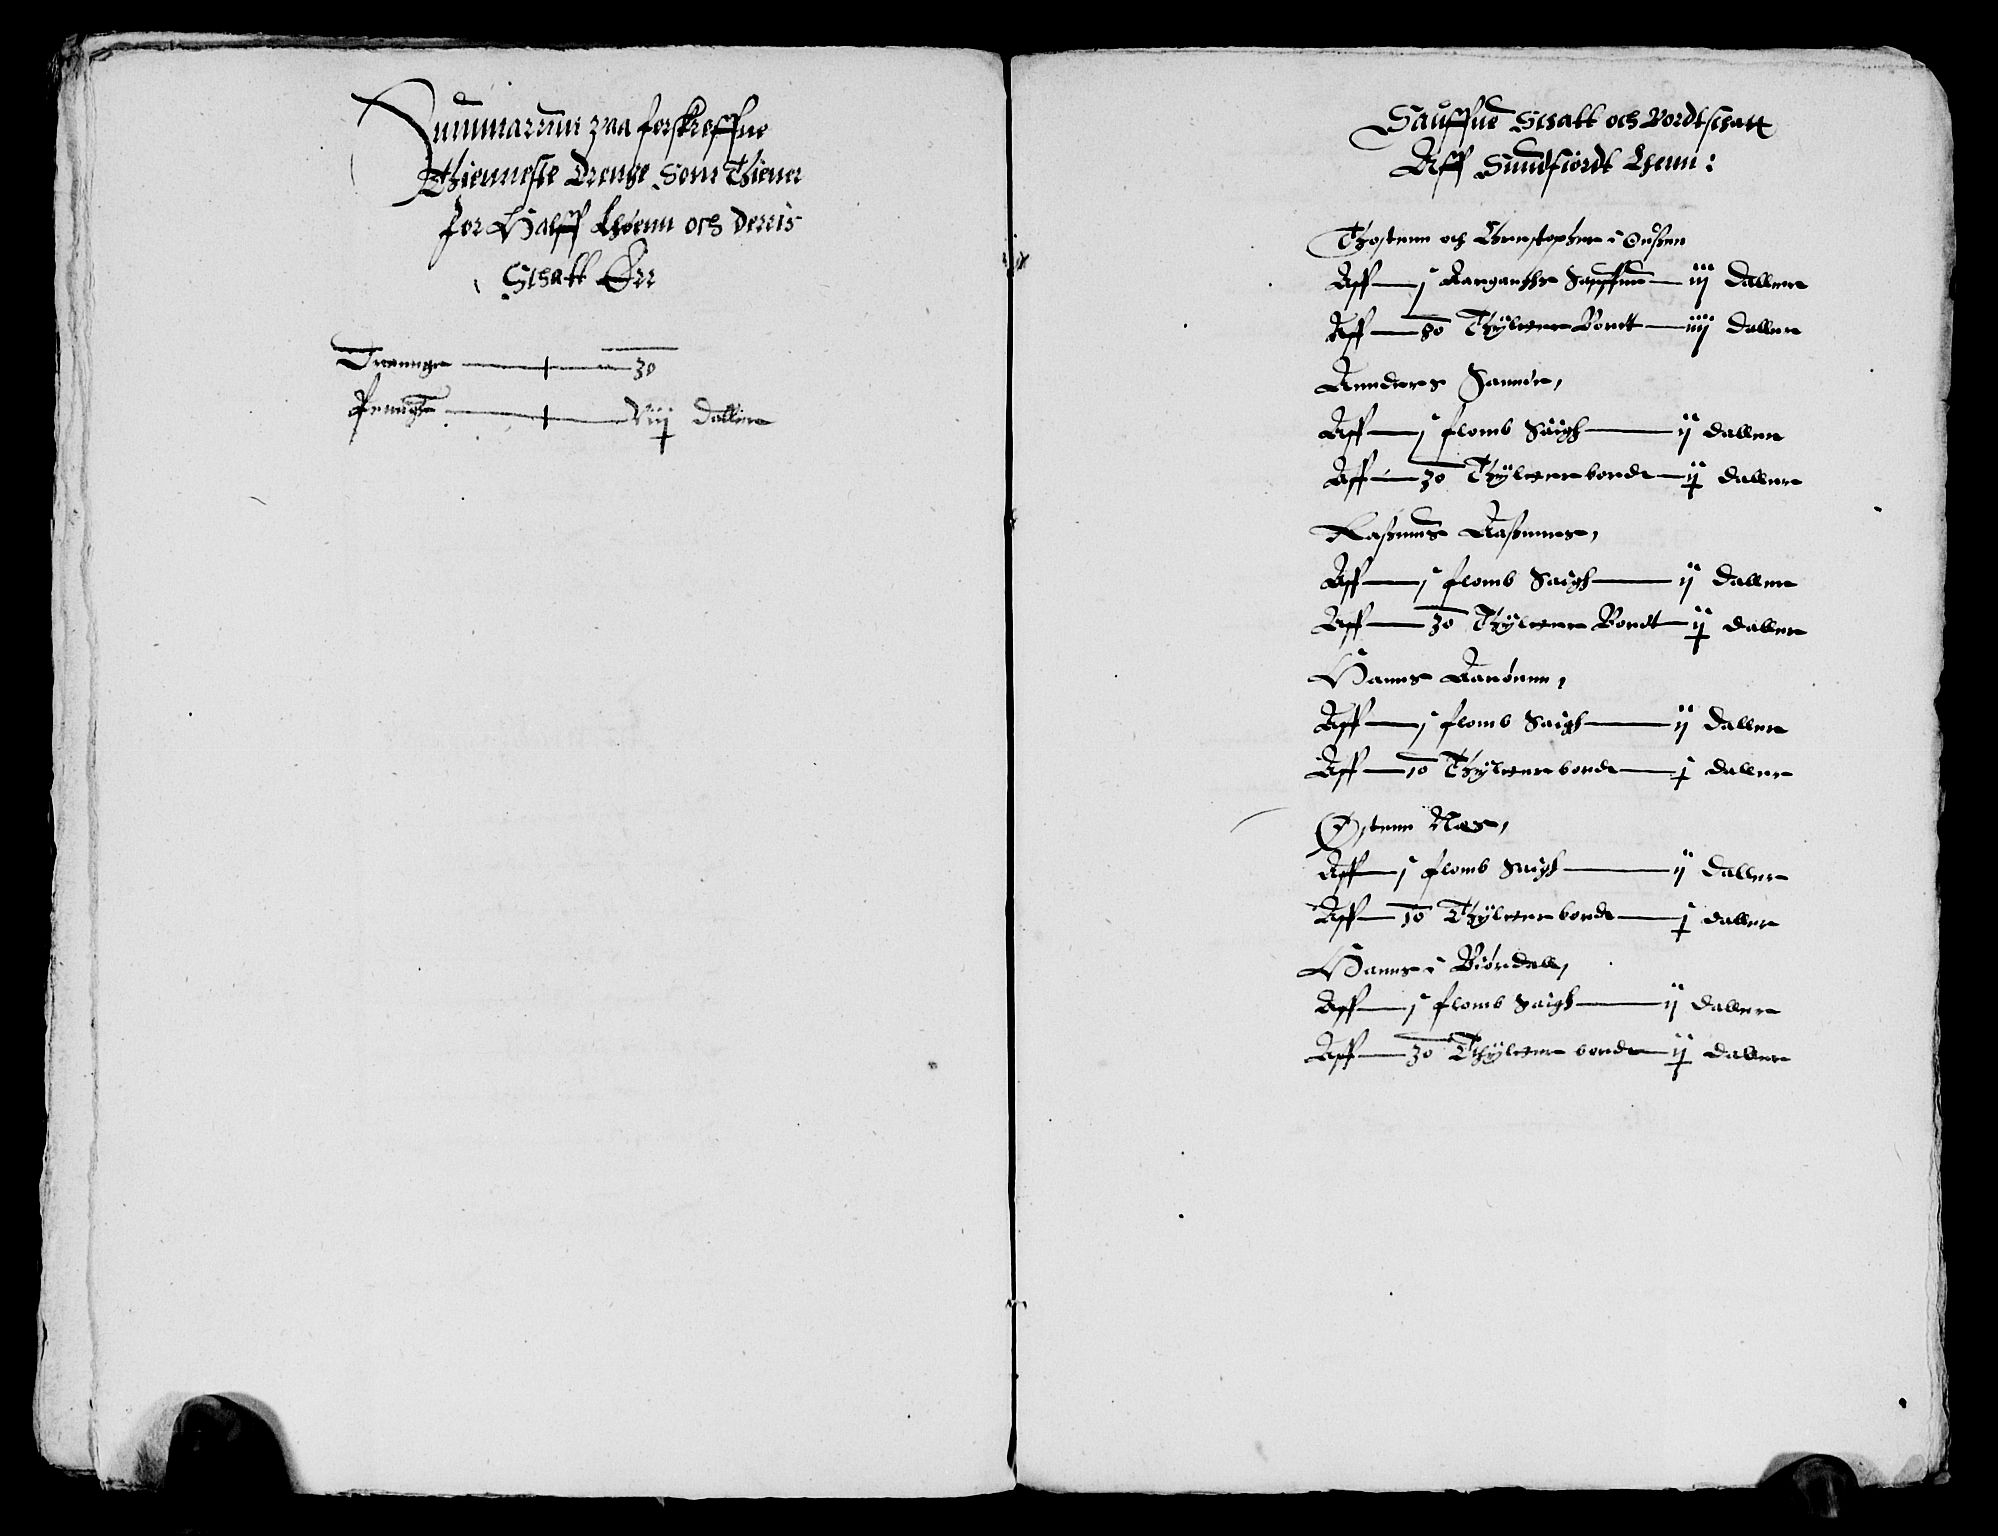 Summarum paa forskreffne
Thienneste Drenge Som Thiener
for Halff Løenn och derris
Schatt Err
Drennge 30
Penninge viij Daller
Sauffue Schatt och Bordtschatt
Aff Sundfiordt Lhenn:
Thostenn och Christopher i
Aff j Sauffue iij Daller
Aff 80 Thylter Bordt iiij Daller
Annders
Aff j flomb Saigh ij daller
Aff 30 Thylter bordt ij daller
Rasmus
Aff j flomb Saigh ij daller
Aff 30 Thylter Bordt ij daller
Hanns
Aff j flomb Saigh ij Daller
Aff 10 Thylter bordt j daller
Østenn Næs,
Aff j flomb Saigh ij daller
Aff 10 Thylter bordt j daller
Hanns i Biørdall,
Aff j flomb Saigh ij daller
Aff 30 Thylter bordt ij daller